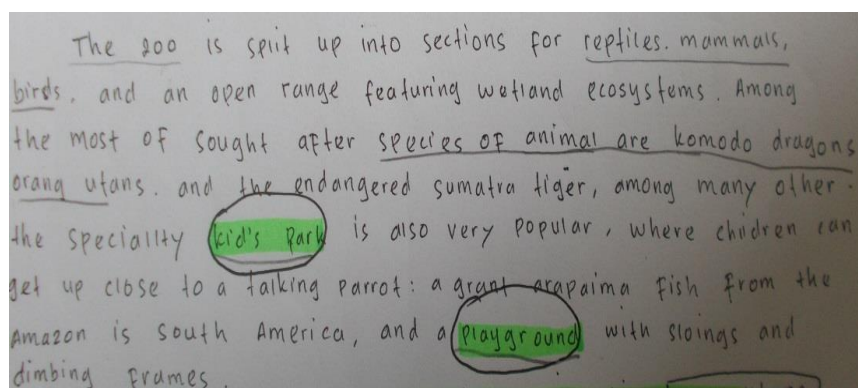 The zoo is split up into sections for reptiles. mammals,
birds. and an open range featuring wetland ecosystems. Among
the most of sought after species of animal are komodo dragons
orang utans. and the endangered sumatra tiger, among many other.
the speciallty kid's park is also very popular, where chidren can
get up close to a talking parrot: a grant arapaima fish from the
Amazon is south America, and a playground with sloings and
dimbing frames.